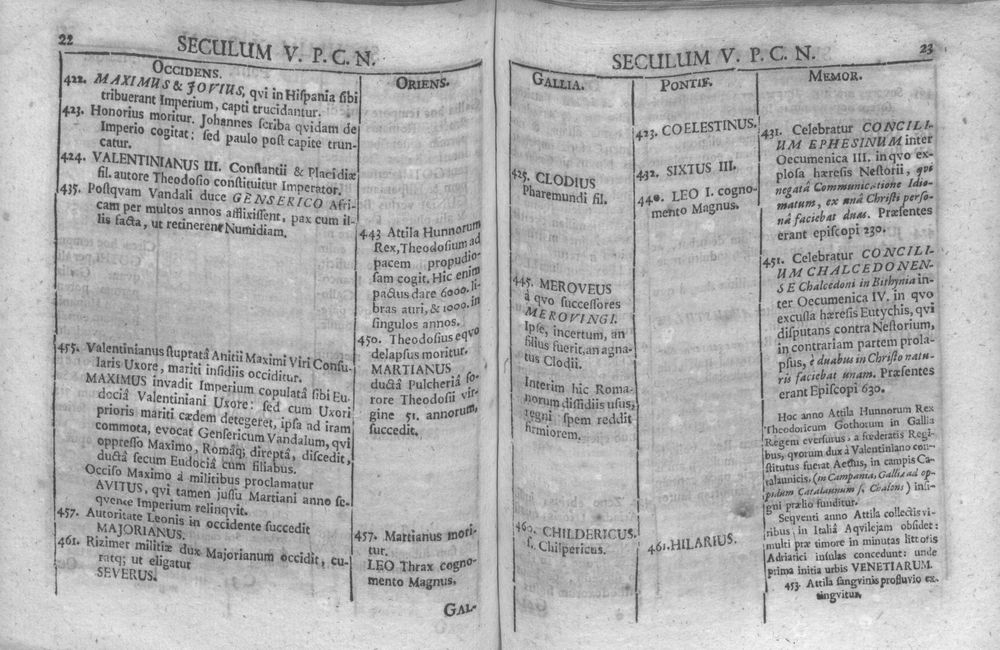 22
SECULUM V. P. C. N.
OCCIDENS.
422. MAXIMUS & JOVIUS, qvi in Hiſpania ſibi
tribuerant Imperium, capti trucidantur.
423. Honorius moritur. Johannes ſcriba qvidam de
Imperio cogitat: ſed paulo poſt capite trun-
catur.
424. VALENTINIANUS III. Conſtantii & Placidiæ
fil. autore Theodoſio conſtituitur Imperator.
435. Poſtqvam Vandali duce GENSERICO Afri-
cam per multos annos afflixiſſent, pax cum il-
lis facta, ut retinerent Numidiam.
455. Valentinianus ſtupratâ Anitii Maximi Viri Conſu-
laris Uxore, mariti inſidiis occiditur.
MAXIMUS invadit Imperium copulatâ ſibi Eu-
dociâ Valentiniani Uxore: ſed cum Uxori
prioris mariti cædem detegeret, ipſa ad iram
commota, evocat Genſericum Vandalum, qvi
oppreſſo Maximo, Româq; direptâ, diſcedit,
ductâ ſecum Eudociâ cum filiabus.
Occiſo Maximo à militibus proclamatur
AVITUS, qvi tamen juſſu Martiani anno ſe-
qvence Imperium relinqvit.
457. Autoritate Leonis in occidente ſuccedit
MAJORIANUS.
461. Rizimer militiæ dux Majorianum occidit, cu-
ratq; ut eligatur
SEVERUS.
ORIENS.
443 Attila Hunnorum
Rex, Theodoſium ad
pacem propudio-
ſam cogit. Hic enim
pactus dare 6000. li-
bras auri, & 1000. in
ſingulos annos.
450. Theodoſius eqvo
delapſus moritur.
MARTIANUS
ductâ Pulcheriâ ſo-
rore Theodoſii vir-
gine 51. annorum,
ſuccedit.
457. Martianus mori-
tur.
LEO Thrax cogno-
mento Magnus.
GAL-
SECULUM V. P. C. N.
23
GALLIA.
425. CLODIUS
Pharemundi fil.
445. MEROVEUS
à qvo ſucceſſores
MEROVINGI.
Ipſe, incertum, an
filius fuerit, an agna-
tus Clodii.
Interim hic Roma-
norum diſſidiis uſus,
regni ſpem reddit
firmiorem.
460. CHILDERICUS.
ſ. Chilpericus.
PONTIF.
423. COELESTINUS.
432. SIXTUS III.
440. LEO I. cogno-
mento Magnus.
461. HILARIUS.
MEMOR.
431. Celebratur CONCILI-
UM EPHESINUM inter
Oecumenica III. in qvo ex-
ploſa hæreſis Neſtorii, qvi
negatâ Communicatione Idio-
matum, ex unâ Chriſti perſo-
nâ faciebat duas. Præſentes
erant epiſcopi 230.
451. Celebratur CONCILI-
UM CHALCEDONEN-
SE Chalcedoni in Bithynia in-
ter Oecumenica IV. in qvo
excuſſa hæreſis Eutychis, qvi
diſputans contra Neſtorium,
in contrariam partem prola-
pſus, è duabus in Chriſto natu-
ris faciebat unam. Præſentes
erant Epiſcopi 630.
Hoc anno Attila Hunnorum Rex
Theodoricum Gothorum in Gallia
Regem everſurus, a fœderatis Regi-
bus, qvorum dux à Valentiniano con-
ſtitutus fuerat Aetius, in campis Ca-
talaunicis. (in Campania, Galliæ ad op-
pidum Catalaunum ſ. Chalons) inſi-
gni prælio funditur.
Seqventi anno Attila collectis vi-
ribus, in Italiâ Aqvilejam obſidet:
multi præ timore in minutas littoris
Adriatici inſulas concedunt: unde
prima initia urbis VENETIARUM.
453. Attila ſangvinis profluvio ex-
tingvitur.